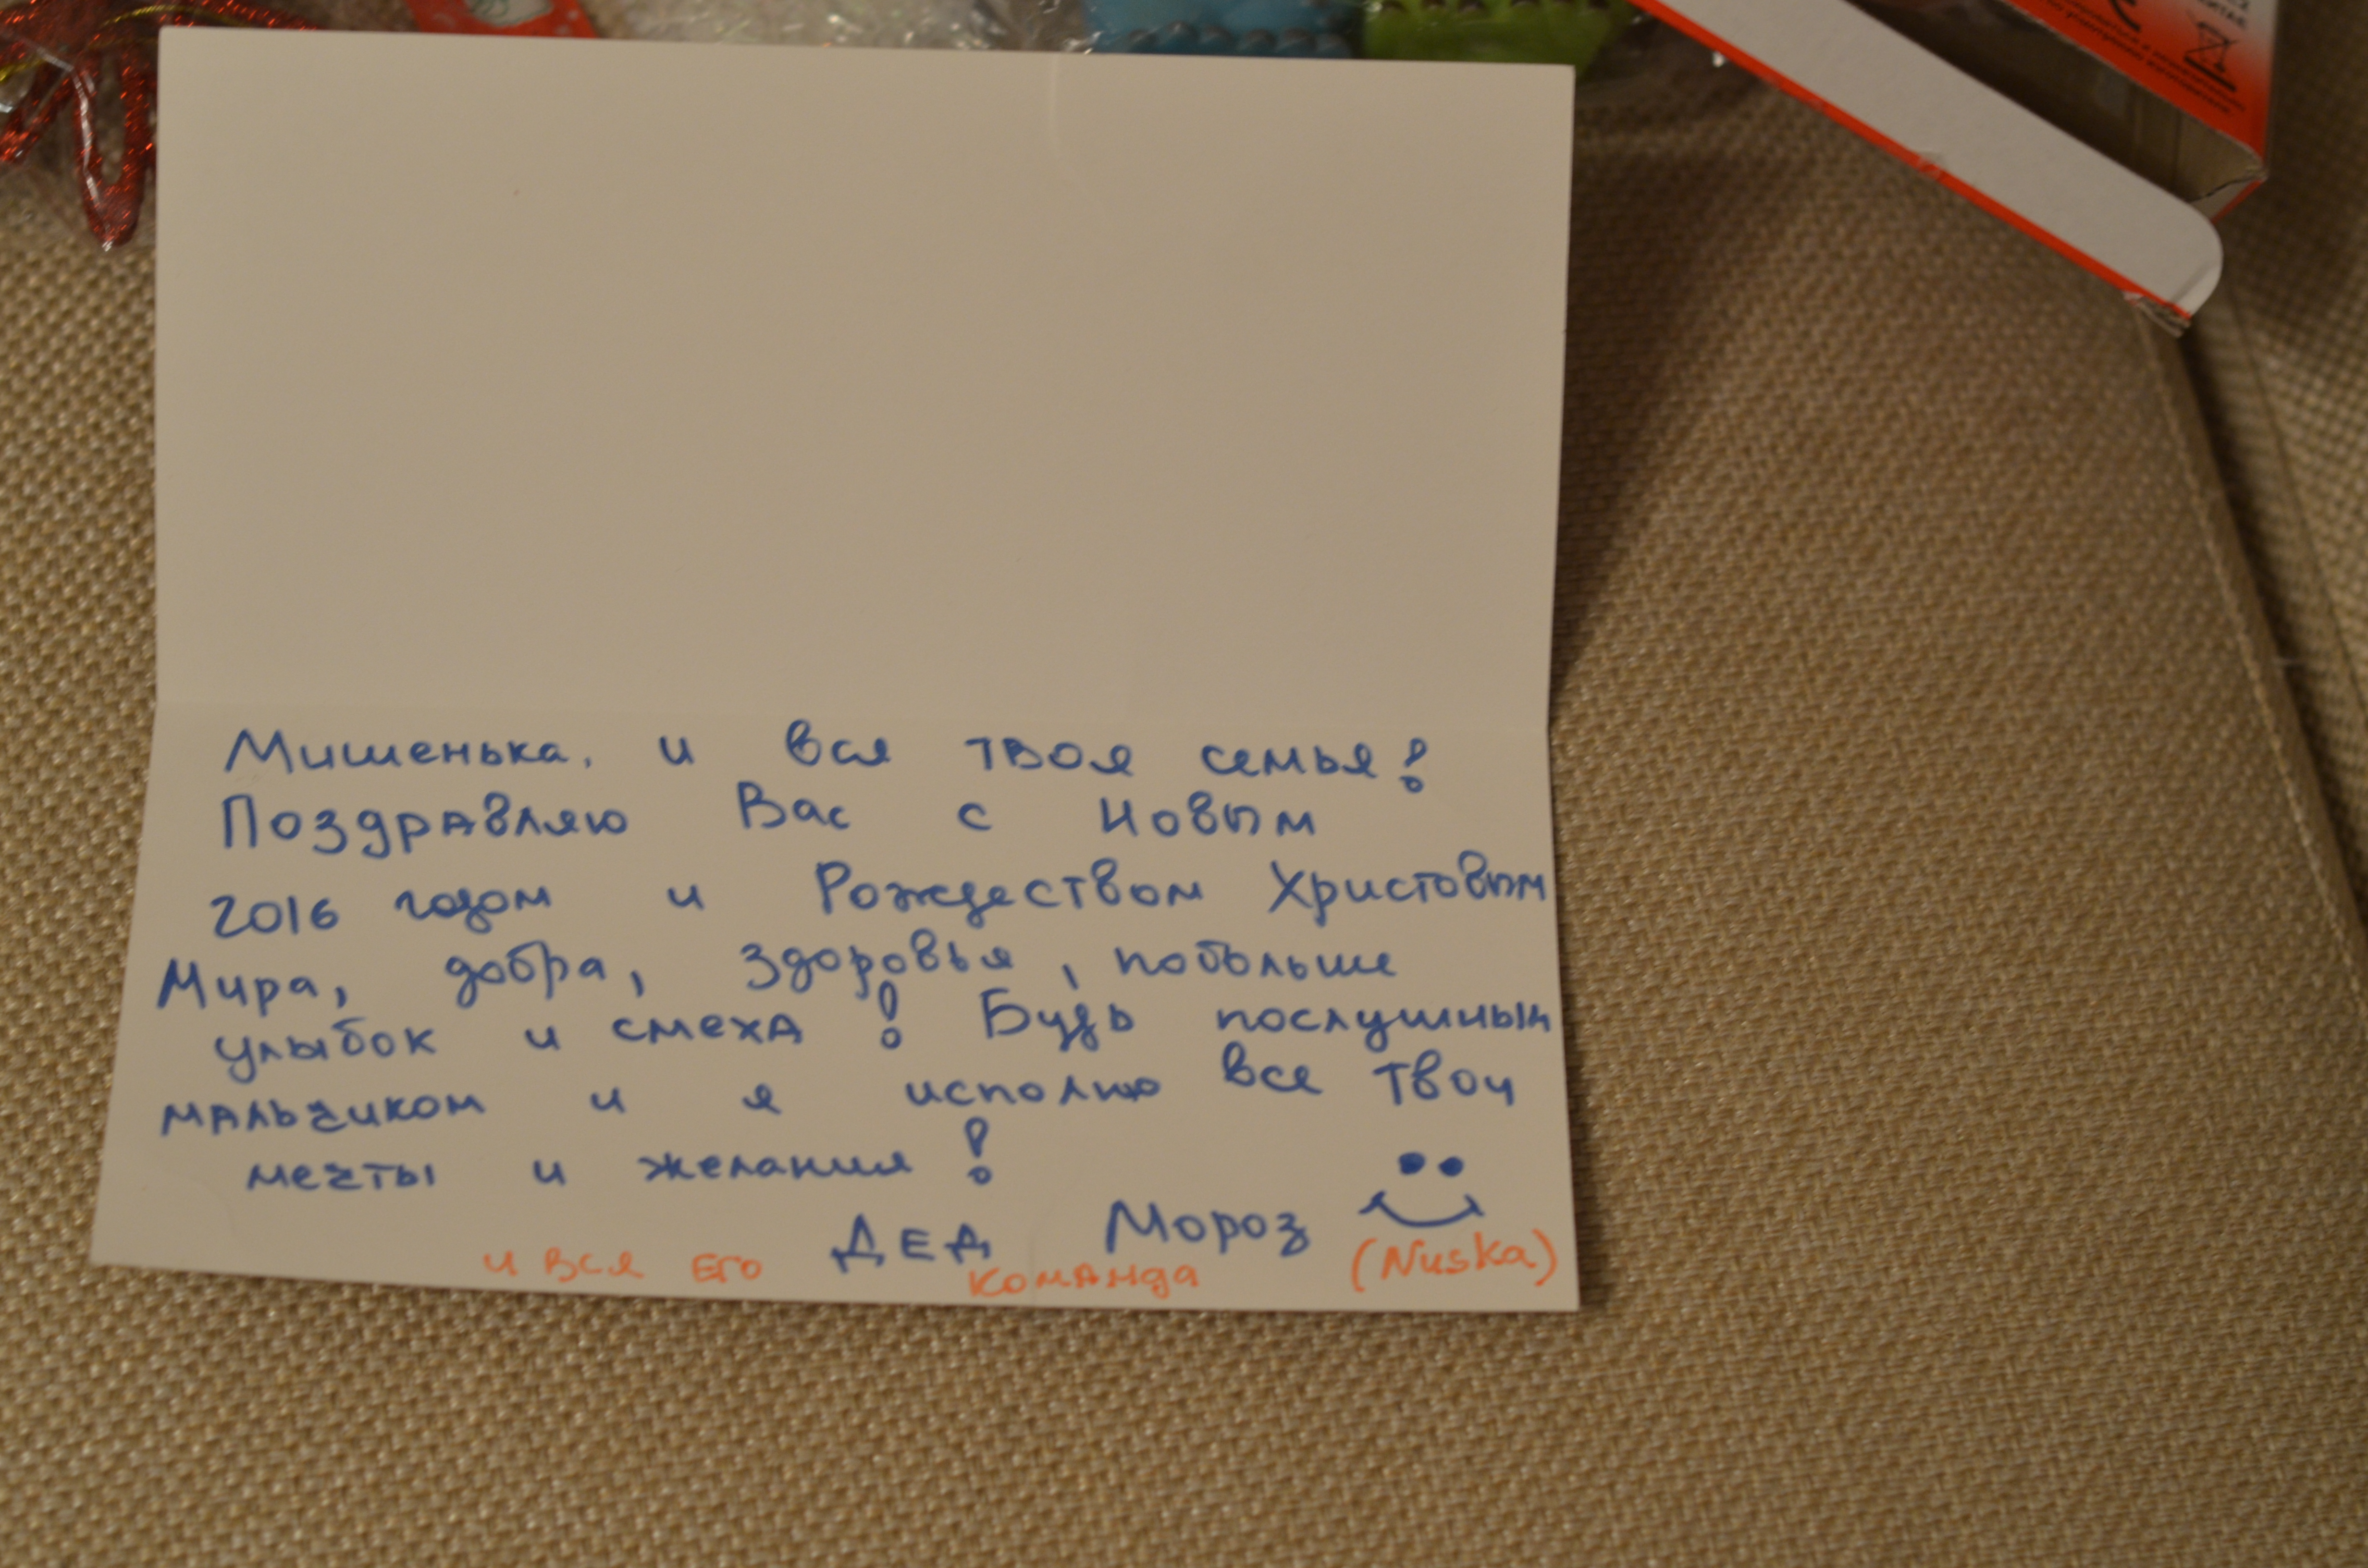 Мишенька, и вся твоя семья!
Поздравляю Вас с Новым
2016 годом и Рождеством Христовым
Мира, добра, здоровья, побольше
улыбок и смеха! Будь послушным
мальчиком и я исполню все твои
мечты и желания!
ДЕД Мороз
и вся ЕГО команда (Nuska)